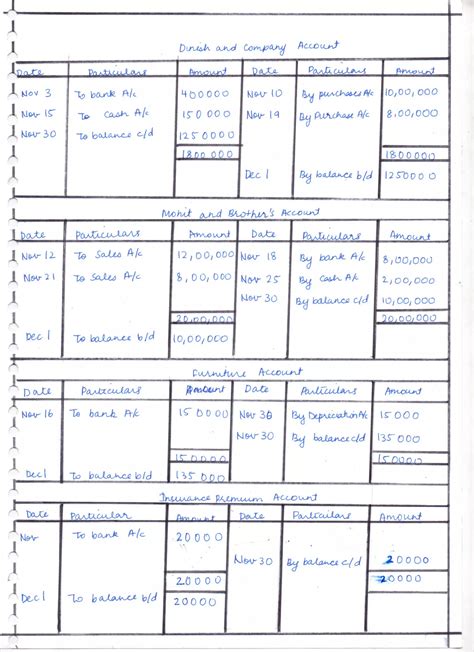 Dinesh and Company Account
Date Particulars Amount Date Particulars Amount
Nov 3 To bank A/c 400000 Nov 10 By purchases A/c 10,00,000
Nov 15 To cash A/c 150 000 Nov 19 By Purchase A/c 8,00,000
Nov 30 To balance c/d 1250000
1800 000 1800000
Dec 1 By balance b/d 1250000
Mohit and Brother's Account
Date Particulars Amount Date Particulars Amount
Nov 12 To Sales A/c 12,00,000 Nov 18 By bank A/c 8,00,000
Nov 21 To Sales A/c 8,00,000 Nov 25 By Cash A/c 2,00,000
Nov 30 By balance c/d 10,00,000
20,00,000 20,00,000
Dec 1 To balance b/d 10,00,000
Furniture Account
Date Particulars Amount Date Particulars Amount
Nov 16 To bank A/c 150000 Nov 30 By Depreciation A/c 15000
Nov 30 By balance c/d 135 000
150000 150000
Dec 1 To balance b/d 135 000
Insurance Premium Account
Date Particular Amount Date Particulars Amount
Nov To bank A/c 20000
Nov 30 By balance c/d 20000
20000 20000
Dec 1 To balance b/d 20000